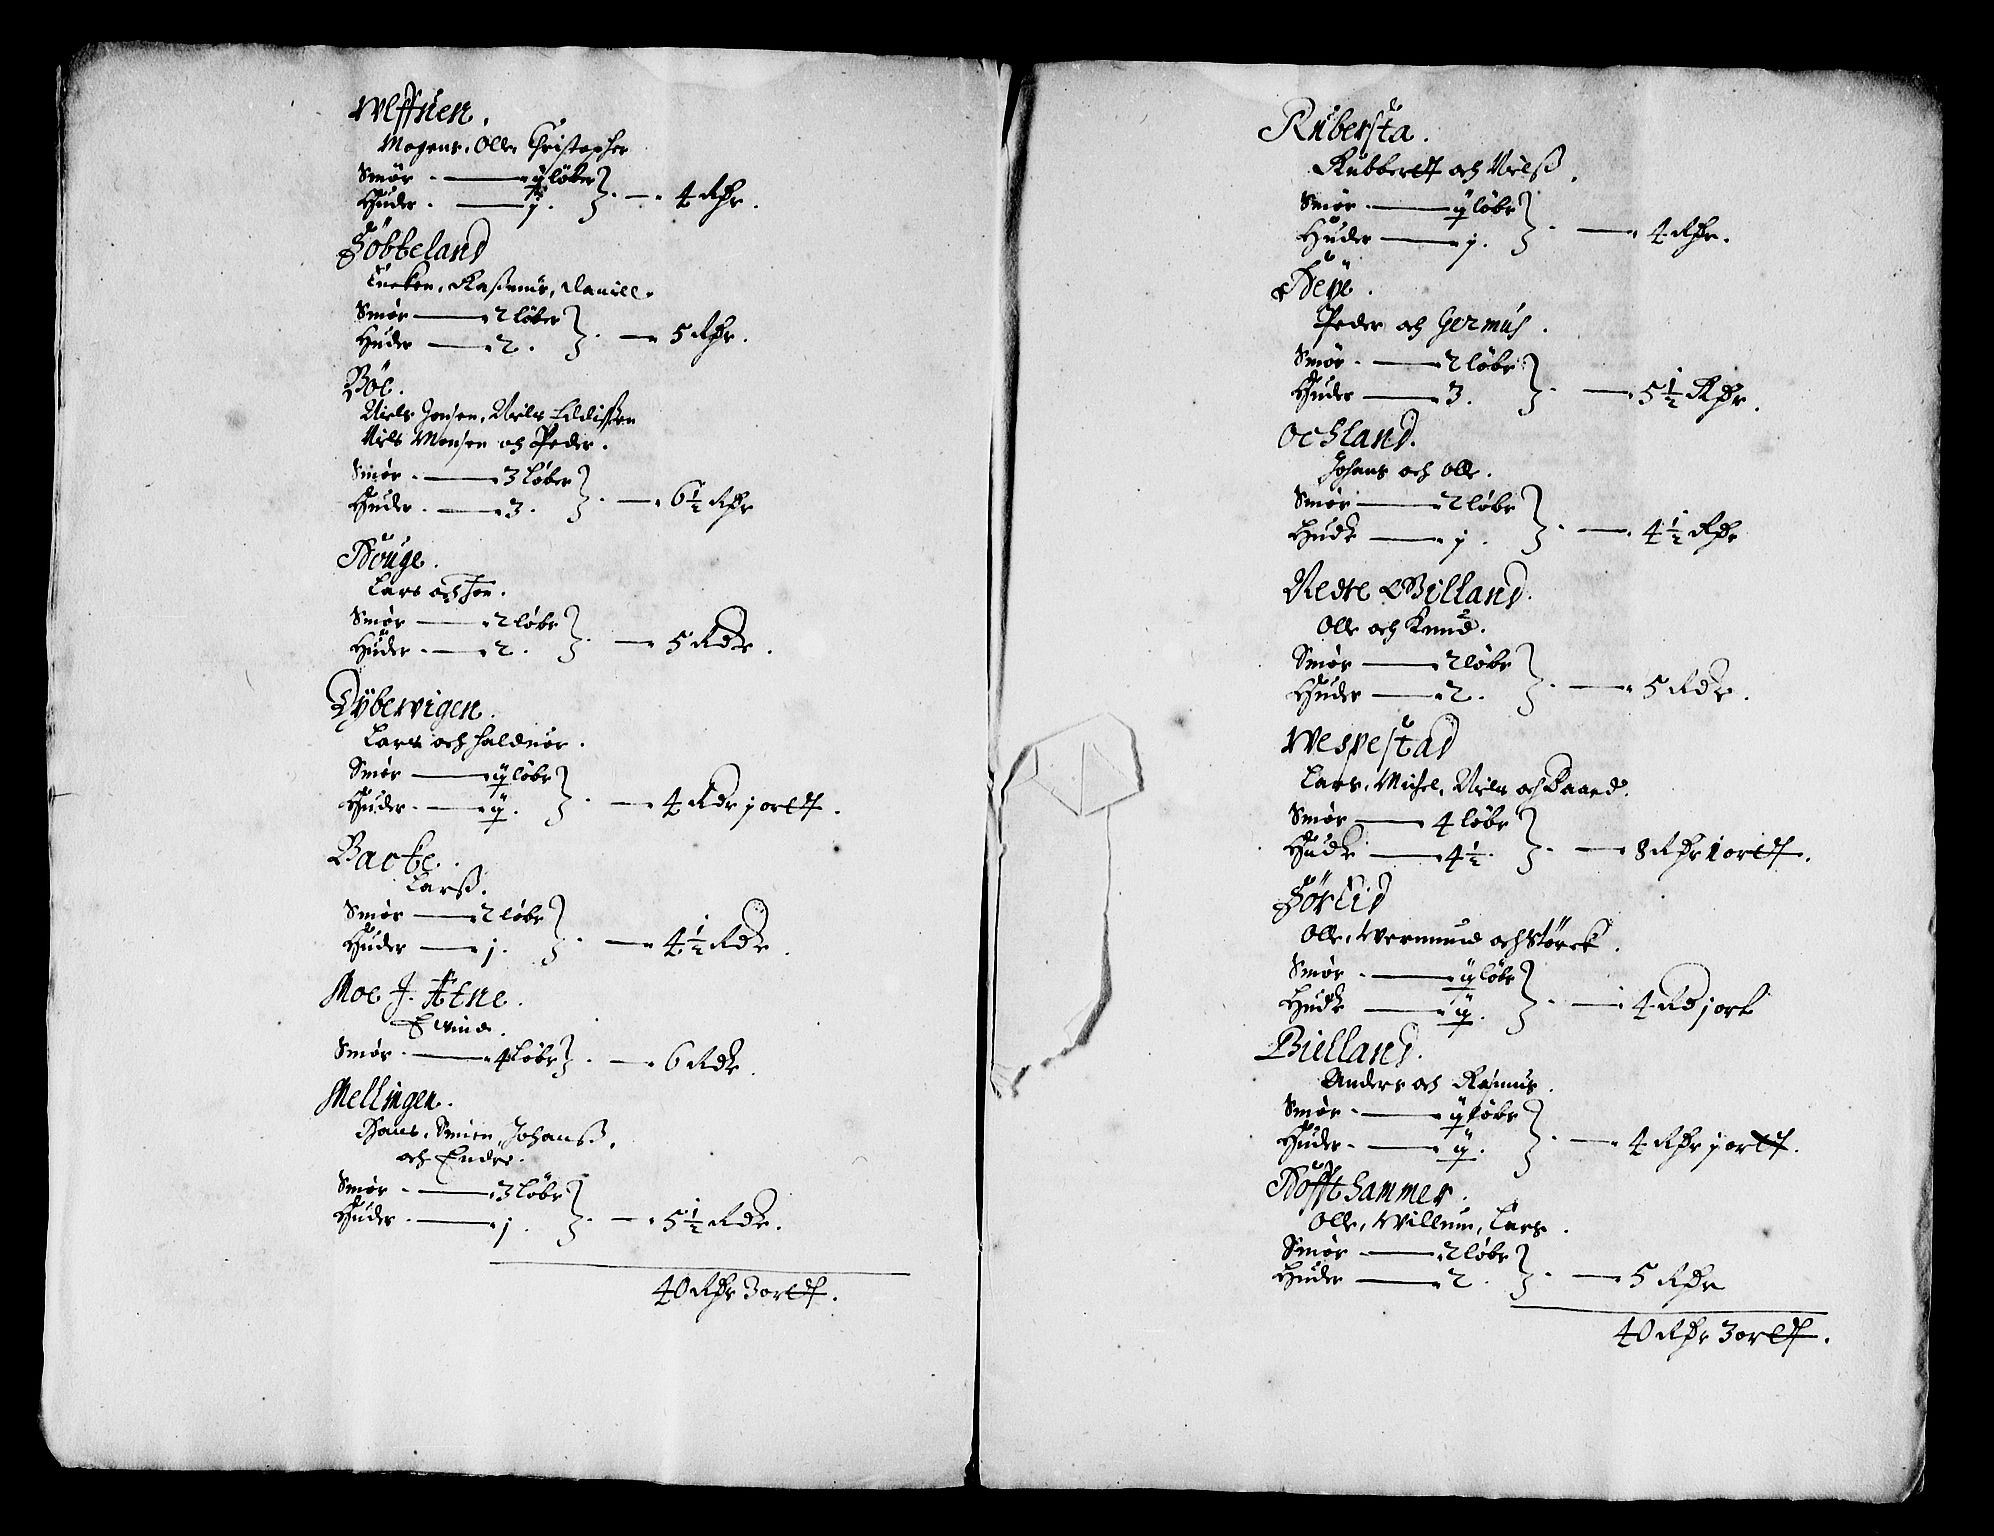 Wlffuen.
Mogens, Olle, Christopher
Smör — ij löber
Huder — j. — 4 Rdr.
Föbbeland
Rassmus, Daniell.
Smör — 2 löber
Huder — 2. — 5 Rdr.
Böe.
Niels Jonsen, Niels
Niels Monsen och Peder.
Smör — 3 löber
Huder — 3. — 6½ Rdr
Houge.
Lars och Jon.
Smör — 2 löbr
Huder — 2. — 5 Rdr.
Dybevigen.
Lars och Halduor.
Smör — ij löbr
Huder — ij. — 4 Rdr j ort.
Backe.
Larss.
Smör — 2 löbr
Huder — j. — 4½ Rdr.
Moe J. Etne.
Ewind.
Smör — 4 löbr — 6 Rdr.
Mellingen.
Hans, Smien, Johanss,
och Endre.
Smör — 3 löbr
Huder — j. — 5½ Rdr.
40 Rdr 3 ort.
Rubersta.
Rubbert och Nielss.
Smör — ij löbr
Huder — j. — 4 Rdr.
Höye.
Peder och Germus.
Smör — 2 löbr
Huder — 3. — 5½ Rdr.
Ochland.
Johans och Olle.
Smör — 2 löbr
Hude — j. — 4½ Rdr
Nedre Billand.
Olle och Knud.
Smör — 2 löbr
Huder — 2. — 5 Rdr.
Wespestad
Lars, Michel, Niels och Baard.
Smör — 4 löbr
Hude — 4½. — 8 Rdr 1 ort.
Förlid
Olle, Wermund och Störck.
Smör — ij löbr
Hude — ij. — 4 Rd j ort
Bielland.
Anders och Rasmus.
Smör — ij löbr
Huder — ij. — 4 Rdr j ort.
Höffthammer.
Olle, Willum, Lars.
Smör — 2 löbr
Huder — 2. — 5 Rdr
40 Rdr 3 ort.